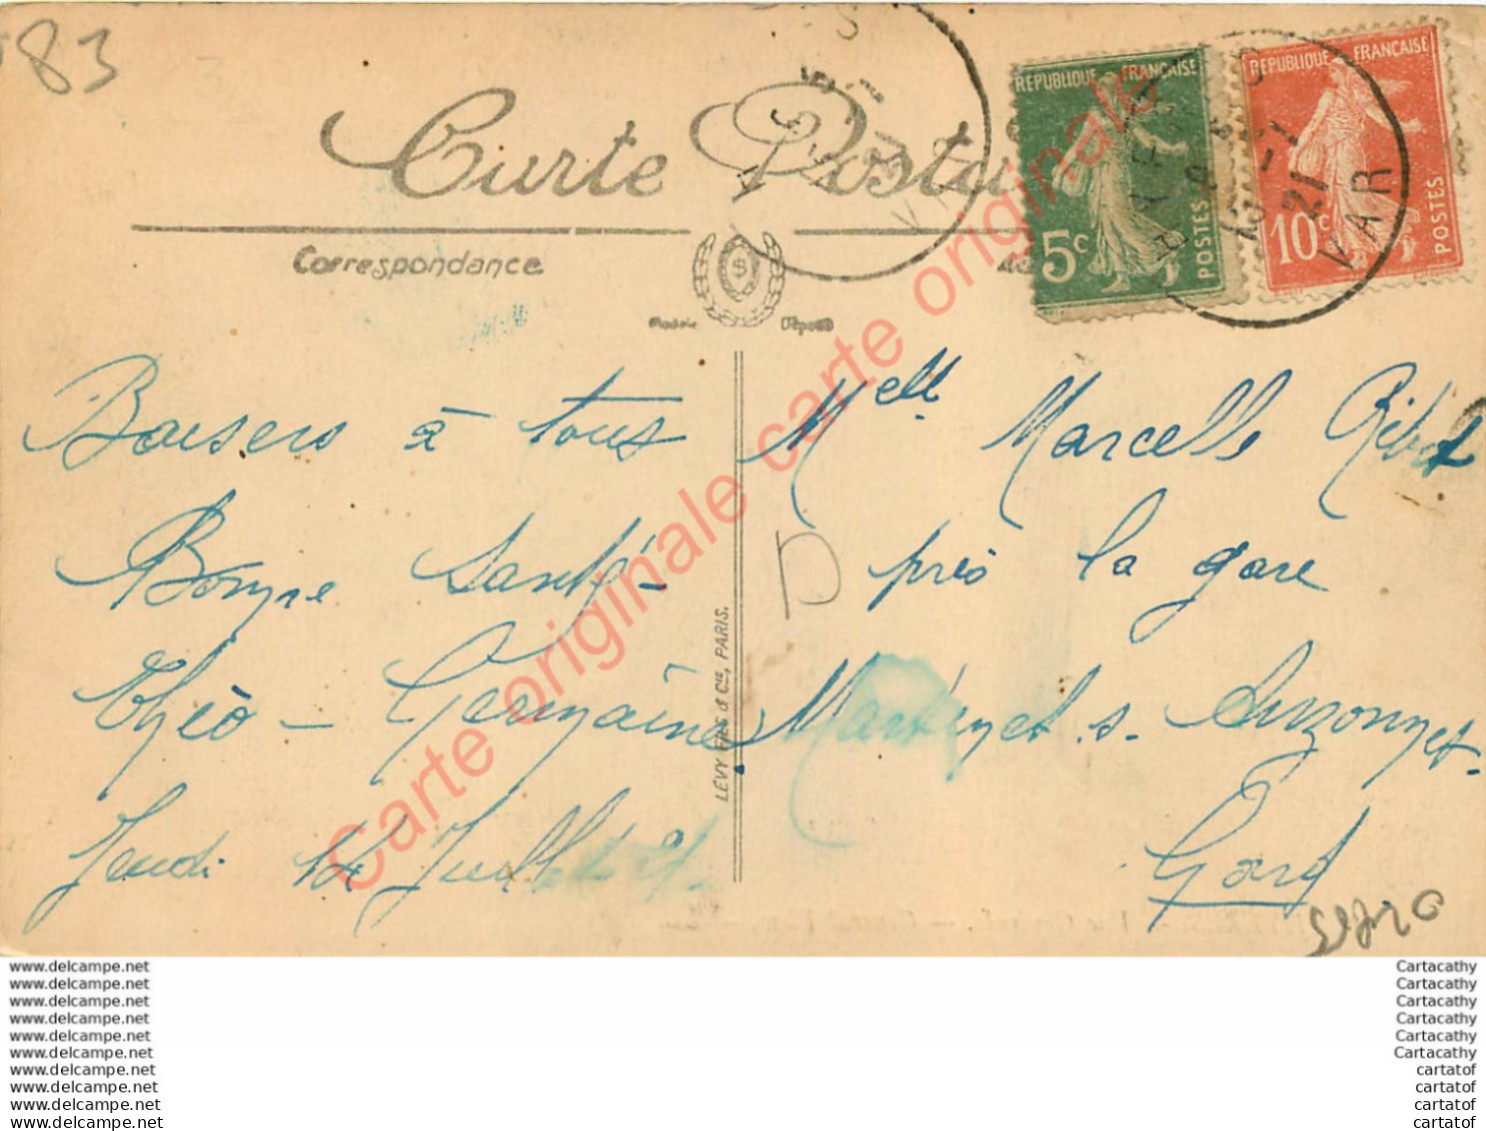 83
Carte Posta
Correspondance
Modèle Déposé
RÉPUBLIQUE FRANÇAISE
5c
POSTES
RÉPUBLIQUE FRANÇAISE
10c
POSTES
21
VAR
Baisers à tous
Bonne Santé -
Théo - Germaine
Jeudi 14 Juillet 21.
LÉVY FILS & Cie, PARIS.
D
Melle Marcelle
près la gare
Martinet s.
Gard
Carte originale carte originale carte originale
www.delcampe.net
www.delcampe.net
www.delcampe.net
www.delcampe.net
www.delcampe.net
www.delcampe.net
www.delcampe.net
www.delcampe.net
www.delcampe.net
www.delcampe.net
Cartacathy
Cartacathy
Cartacathy
Cartacathy
Cartacathy
Cartacathy
cartatof
cartatof
cartatof
cartatof